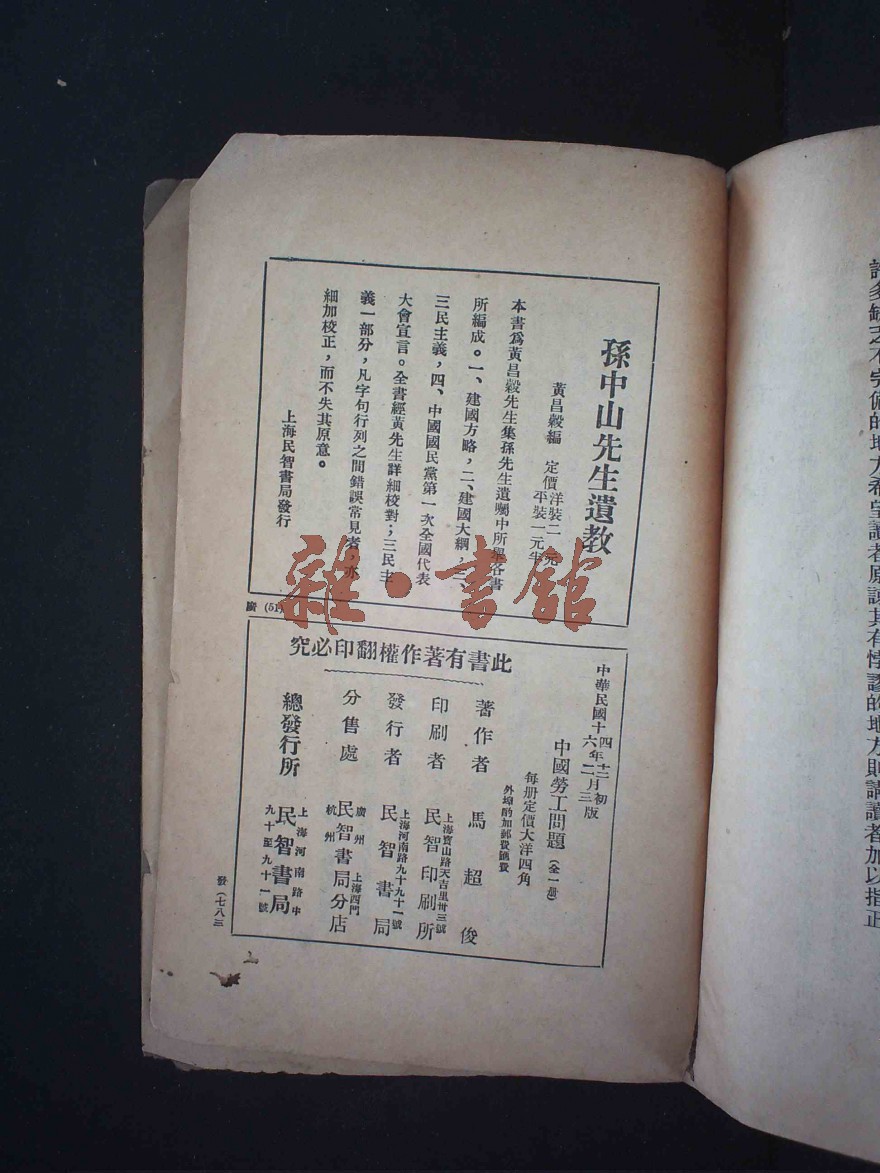 孫中山先生遺教
黃昌穀編
定價洋裝二元
平裝一元半
本書爲黃昌穀先生集孫先生遺囑中所舉各書
所編成。一、建國方略,二、建國大綱,三、
三民主義,四、中國國民黨第一次全國代表
大會宣言。全書經黃先生詳細校對;三民主
義一部分,凡字句行列之間錯誤常見者,亦
細加校正,而不失其原意。
上海民智書局發行
廣(51)
雜·書館
中華民國十四年十二月初版
六 二 三
中國勞工問題(全一册)
每册定價大洋四角
外埠酌加郵費匯費
此書有著作權翻印必究
著作者 馬超俊
印刷者 上海寶山路天吉里卅三號
民智印刷所
發行者 上海河南路九十九十一號
民智書局
分售處 廣州 上海西門
杭州
民智書局分店
總發行所 上海河南路中
九十至九十一號
民智書局
發(七八三
許多缺乏不完備的地方希望讀者原諒其有悖謬的地方則請讀者加以指正